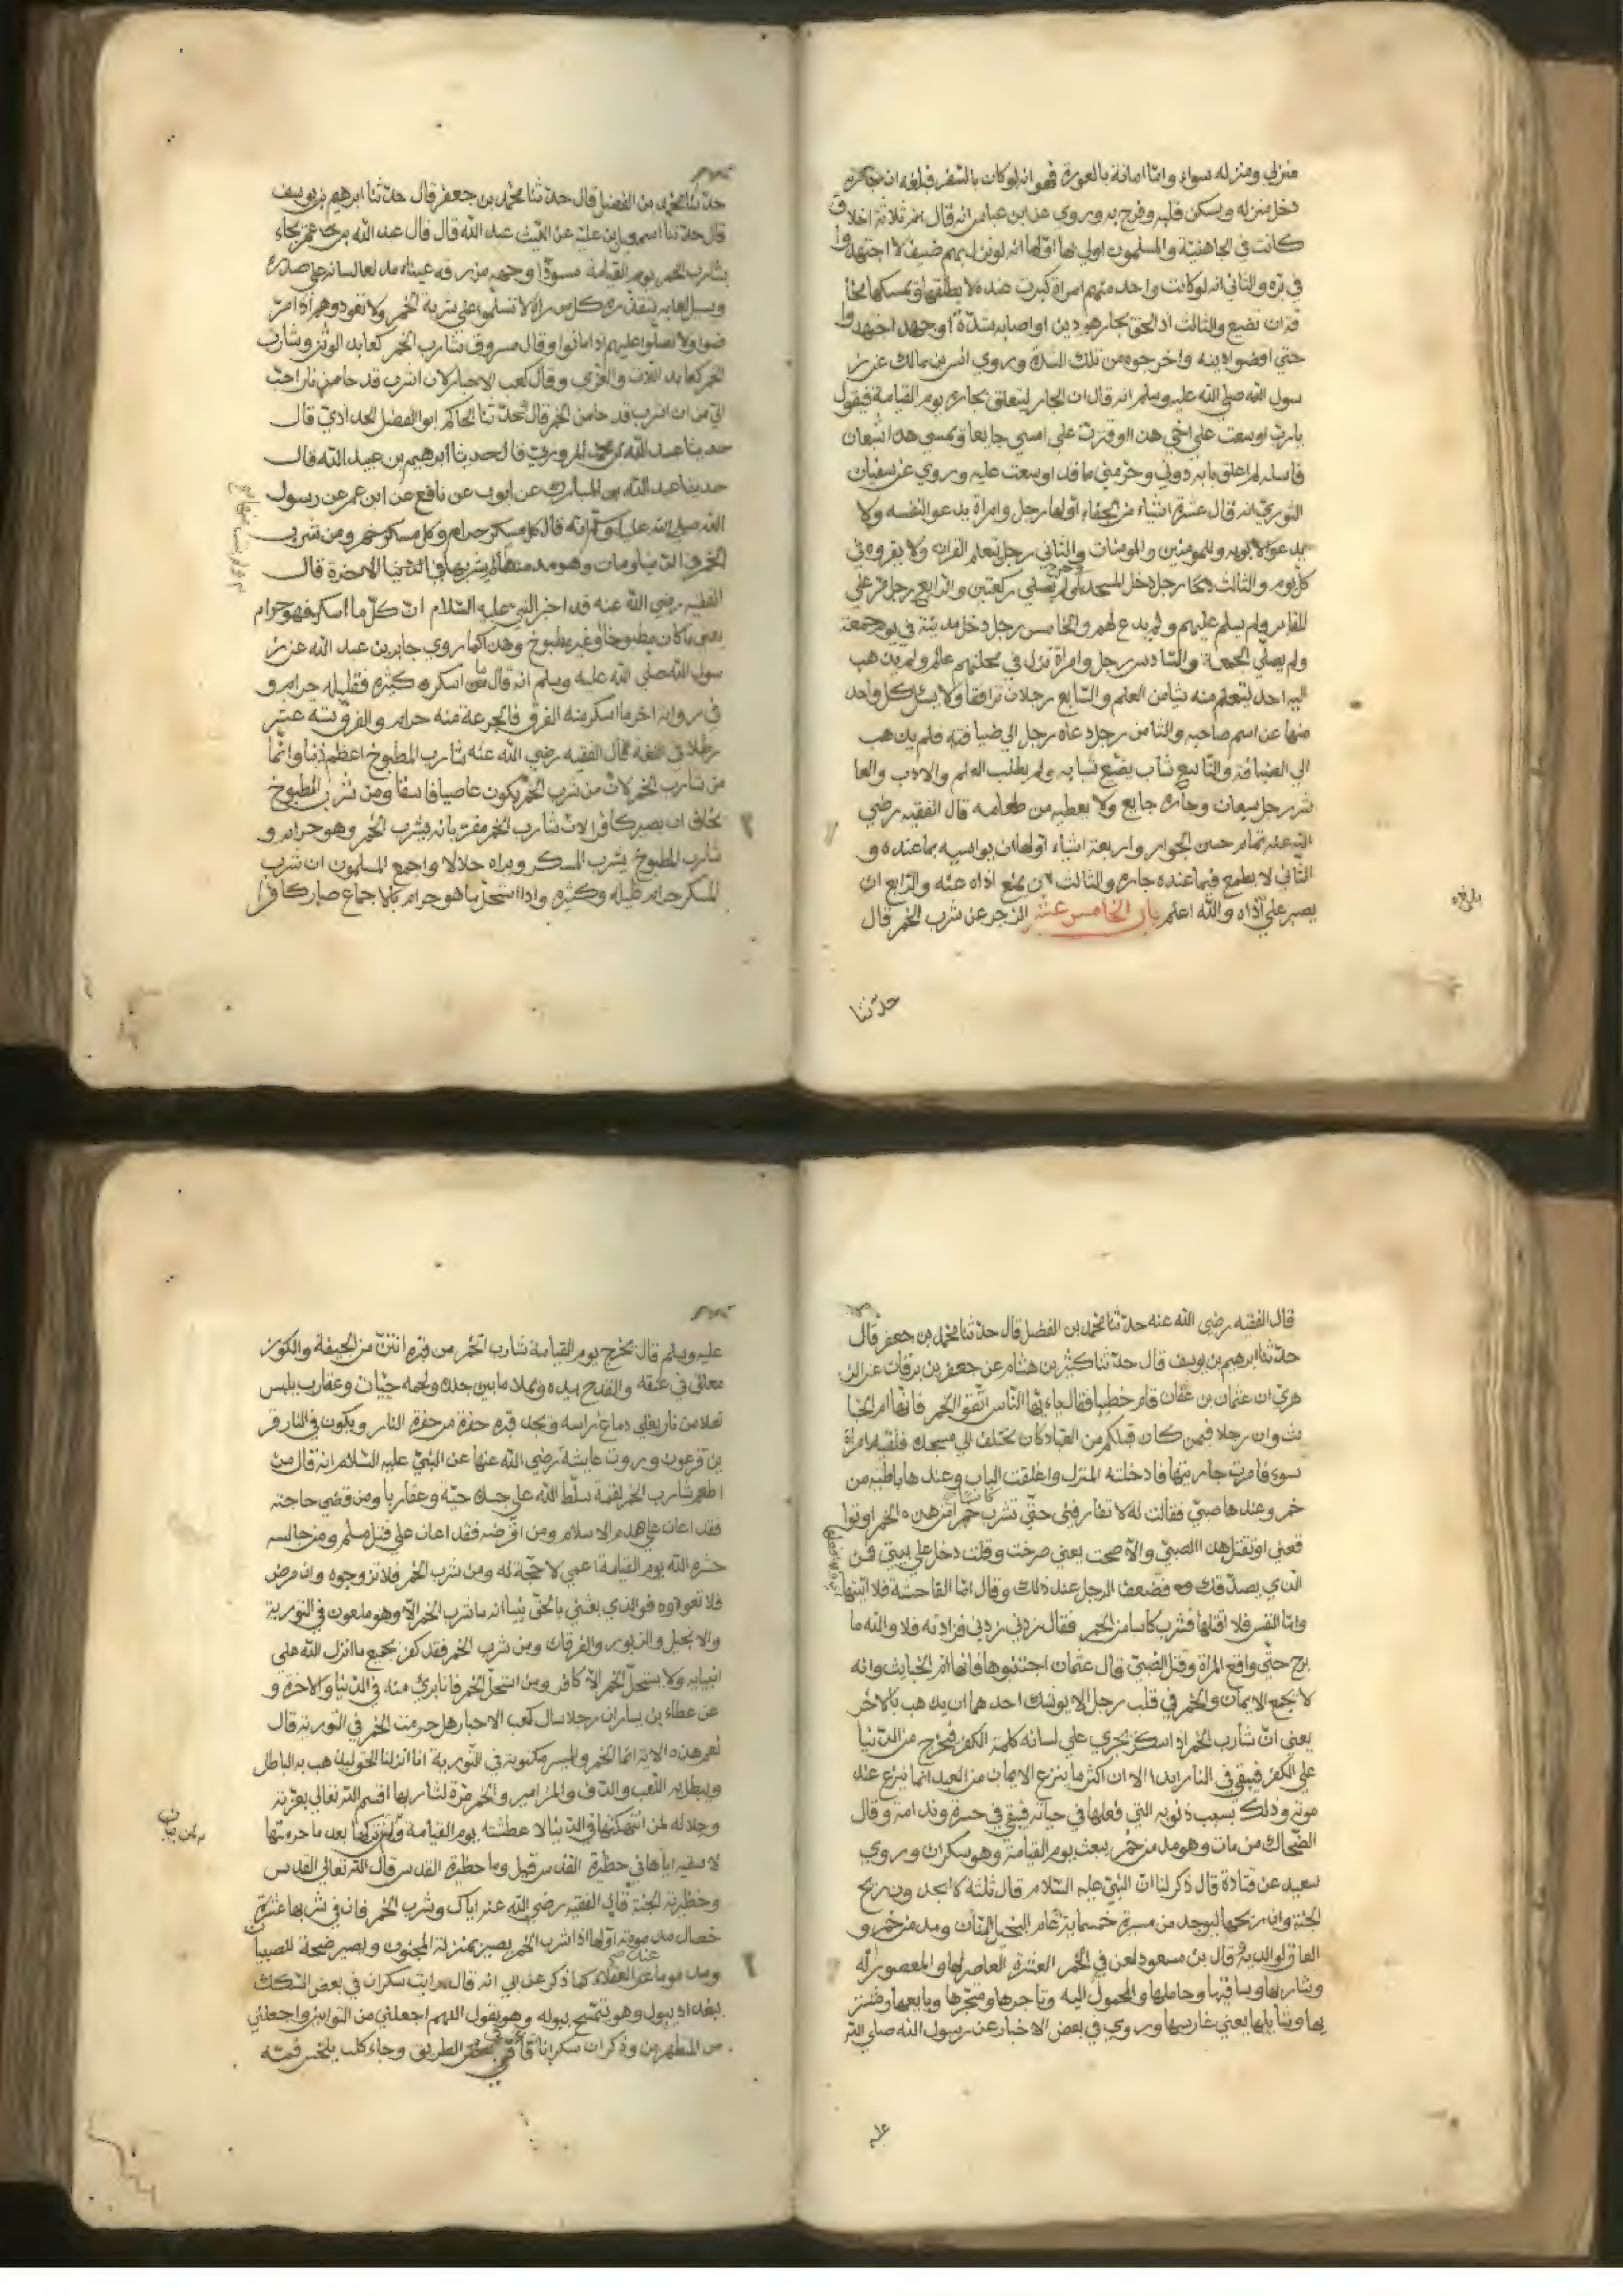 منزلي ومنزله سواء وامّا امانة بالعورة فهو انه لو كان بالسفر فبلغه ان جاره
دخل منزله ويسكن قلبه وفرح به وروي عن ابن عباس انه قال ثلاثة اخلاق
كانت في الجاهلية والمسلمون اولي بها اولها انه لو نزل بهم ضيف لا اجتهدوا
في بره والثاني انه لو كانت واحد منهم امراة كبرت عنده لا يطلقها ويمسكها مخا
فة ان تضيع والثالث اذ الحق بجارهم دين او اصابه شدة او جهد اجتهدوا
حتي اقضوا دينه واخرجوه من تلك الشدة وروي انس بن مالك عن ر
سول الله صلي الله عليه وسلم انه قال ان الجار ليتعلق بجاره يوم القيامة فيقول
يا رب اوسعت علي اخي هذا وقترت علي امسي جايعا ويمسي هذا شبعان
فاسله لم اغلق بابه دوني وحرمني ما قد اوسعت عليه وروي عن سفيان
الثوري انه قال عشرة اشياء من الجفاء اولها رجل وامراة يدعو لنفسه ولا
يدعو لابويه وللمومنين والمومنات والثاني رجل تعلم القران ولا يقروه في
كل يوم والثالث رجل دخل المسجد ولم يصلي ركعتين والرابع رجل مر علي
المقابر ولم يسلم عليهم ولم يدع لهم والخامس رجل دخل مدينة في يوم جمعة
ولم يصلي الجمعة والسادس رجل وامراة نزل في محلتهم عالم ولم يذهب
اليه احد ليتعلم منه شيا من العلم والسابع رجلان ترافقا ولا يسئل كل واحد
منهما عن اسم صاحبه والثامن رجل دعاه رجل الي ضيافة فلم يذهب
الي الضيافة والتاسع شاب يضيع شبابه ولم يطلب العلم والادب والعا
شر رجل شبعان وجاره جايع ولا يعطيه من طعامه قال الفقيه رضي
الله عنه تمام حسن الجوار واربعة اشياء اولها ان يواسيه بما عنده و
الثاني لا يطمع فيما عنده جاره والثالث ان يمنع اذاه عنه والرابع ان
يصبر علي اذاه والله اعلم باب الخامس عشر الزجر عن شرب الخمر قال
حدّثنا
حدثنا محمد بن الفضل قال حدثنا محمد بن جعفر قال حدثنا ابرهيم بن يوسف
قال حدثنا اسمعيل بن علية عن الليث عبد الله قال قال عبد الله بن عمر يجاء
بشارب الخمر يوم القيامة مسودا وجهه مزرقة عيناه مدلعا لسانه علي صدره
ويسيل لعابه يتقذره كل من راه لا تسلموا علي شربة الخمر ولا تعودوهم اذا امر
ضوا ولا تصلوا عليهم اذا ماتوا وقال مسروق شارب الخمر كعابد الوثن وشارب
الخمر كعابد اللات والعزي وقال كعب الاحبار لان اشرب قدحا من نار احب
الي من ان اشرب قدحا من الخمر قال حدثنا الحاكم ابو الفضل الحدادي قال
حدثنا عبد الله بن محمد المروزي قال حدثنا ابرهيم بن عبد الله قال
حدثنا عبد الله بن المبارك عن ايوب عن نافع عن ابن عمر عن رسول
الله صلي الله عليه وسلم انه قال كل مسكر حرام وكل مسكر خمر ومن شرب
الخمر في الدنيا ومات وهو مدمنها لم يشربها في الاخرة قال
الفقيه رضي الله عنه قد اخبر النبي عليه السلام ان كل ما اسكر فهو حرام
يعني ما كان مطبوخا او غير مطبوخ وهذا كما روي جابر بن عبد الله عن ر
سول الله صلي الله عليه وسلم انه قال ما اسكره كثيره فقليله حرام و
في رواية اخر ما اسكر منه الفرق فالجرعة منه حرام والفرق ستة عشر
رطلا في اللغة قال الفقيه رضي الله عنه شارب المطبوخ اعظم ذنبا واثما
من شارب الخمر لان من شرب الخمر يكون عاصيا فاسقا ومن شرب المطبوخ
يخاف ان يصير كافرا لان شارب الخمر مقر بانه يشرب الخمر وهو حرام و
شارب المطبوخ يشرب المسكر ويراه حلالا واجمع المسلمون ان شرب
المسكر حرام قليله وكثيره واذا استحل ما هو حرام بالاجماع صار كافرا
قال الفقيه رضي الله عنه حدثنا محمد بن الفضل قال حدثنا محمد بن جعفر قال
حدثنا ابرهيم بن يوسف قال حدثنا كثير بن هشام عن جعفر بن برقان عن الز
هري ان عثمان بن عفان قام خطيبا فقال يا ايها الناس اتقوا الخمر فانها ام الخبا
يث وان رجلا فيمن كان قبلكم من العباد كان يختلف الي مسجد فلقيه امراة
سوء فامرت جاريتها فادخلته المنزل واغلقت الباب وعندها باطية من
خمر وعندها صبي فقالت له لا تفارقني حتي تشرب كاسا من هذه الخمر او توا
قعني او تقتل هذا الصبي والا صحت يعني صرخت وقلت دخل علي بيتي فمن
الذي يصدقك فضعف الرجل عند ذلك وقال اما الفاحشة فلا اتيها
واما النفس فلا اقتلها فشرب كاسا من الخمر فقال زدني زدني فزادته فلا والله ما
برح حتي واقع المراة وقتل الصبي قال عثمان اجتنبوها فانها ام الخبايث وانه
لا يجمع الايمان والخمر في قلب رجل الا يوشك احدهما ان يذهب بالاخر
يعني ان شارب الخمر اذ اسكر يجري علي لسانه كلمة الكفر فيخرج من الدنيا
علي الكفر فيبقي في النار ابدا الا ان اكثر ما ينزع الايمان من العبد انما ينزع عند
موته وذلك بسبب ذنوبه التي فعلها في حياته فيبقي في حسرة وندامة وقال
الضحاك من مات وهو مدمن خمر يبعث يوم القيامة وهو سكران وروي
سعيد عن قتادة قال ذكر لنا ان النبي عليه السلام قال ثلثة لا يجدون ريح
الجنة وان ريحها ليوجد من مسيرة خمسماية عام البخيل المنان ومدمن خمر و
العاق لوالديه وقال بن مسعود لعن في الخمر العشرة العاصر لها والمعصور له
وشاربها وساقيها وحاملها والمحمول اليه وتاجرها ومتجرها وبايعها ومشتر
يها وشايلها يعني غارسها وروي في بعض الاخبار عن رسول الله صلي الله
عليه
عليه وسلم قال يخرج يوم القيامة شارب الخمر من قبره انتن من الجيفة والكوز
معلق في عنقه والقدح بيده ويملا ما بين جلده ولحمه حيات وعقارب يلبس
نعلا من نار يغلي دماغ راسه ويجد قبره حفرة من حفرة النار ويكون في النار قر
ين فرعون وروت عايشة رضي الله عنها عن النبي عليه السلام انه قال من
اطعم شارب الخمر لقمة سلط الله علي جسده حية وعقاربا ومن قضي حاجته
فقد اعان علي هدم الاسلام ومن اقرضه فقد اعان علي قتل مسلم ومن جالسه
حشره الله يوم القيامة اعمي لا حجة له ومن شرب الخمر فلا تزوجوه وان مرض
فلا تعودوه فو الذي بعثني بالحق نبيا انه ما شرب الخمر الا وهو ملعون في التورية
والانجيل والزبور والفرقان ومن شرب الخمر فقد كفر بجميع ما انزل الله علي
انبيايه ولا يستحل الخمر الا كافر ومن استحل الخمر فانا بري منه في الدنيا والاخرة و
عن عطاء بن يسار ان رجلا سال كعب الاحبار هل حرمت الخمر في التورية قال
نعم هذه الاية انما الخمر والميسر مكتوبة في التورية انا انزلنا الحق ليذهب به الباطل
ويبطل به اللعب والدف والمزامير والخمر مرة لشاربها اقسم الله تعالي بعزته
وجلاله لمن انتهكها في الدنيا لا عطشته يوم القيامة ولمن تركها بعد ما حرمتها
لا سقيه اياها في حظيرة القدس قيل وما حظيرة القدس قال الله تعالي القدس
وحظيرته الجنة قال الفقيه رضي الله عنه اياك وشرب الخمر فان في شربها عشرة
خصال مذمومة اولها اذا شرب الخمر يصير بمنزلة المجنون ويصير ضحكة للصبيان
ومذموما عند العقلاء كما ذكر عن ابي انه قال رايت سكران في بعض السكك
ببغداد يبول وهو يتمسح ببوله وهو يقول اللهم اجعلني من التوابين واجعلني
من المطهرين وذكر ان سكرانا قاء في بعض الطريق وجاء كلب يلحس فمه